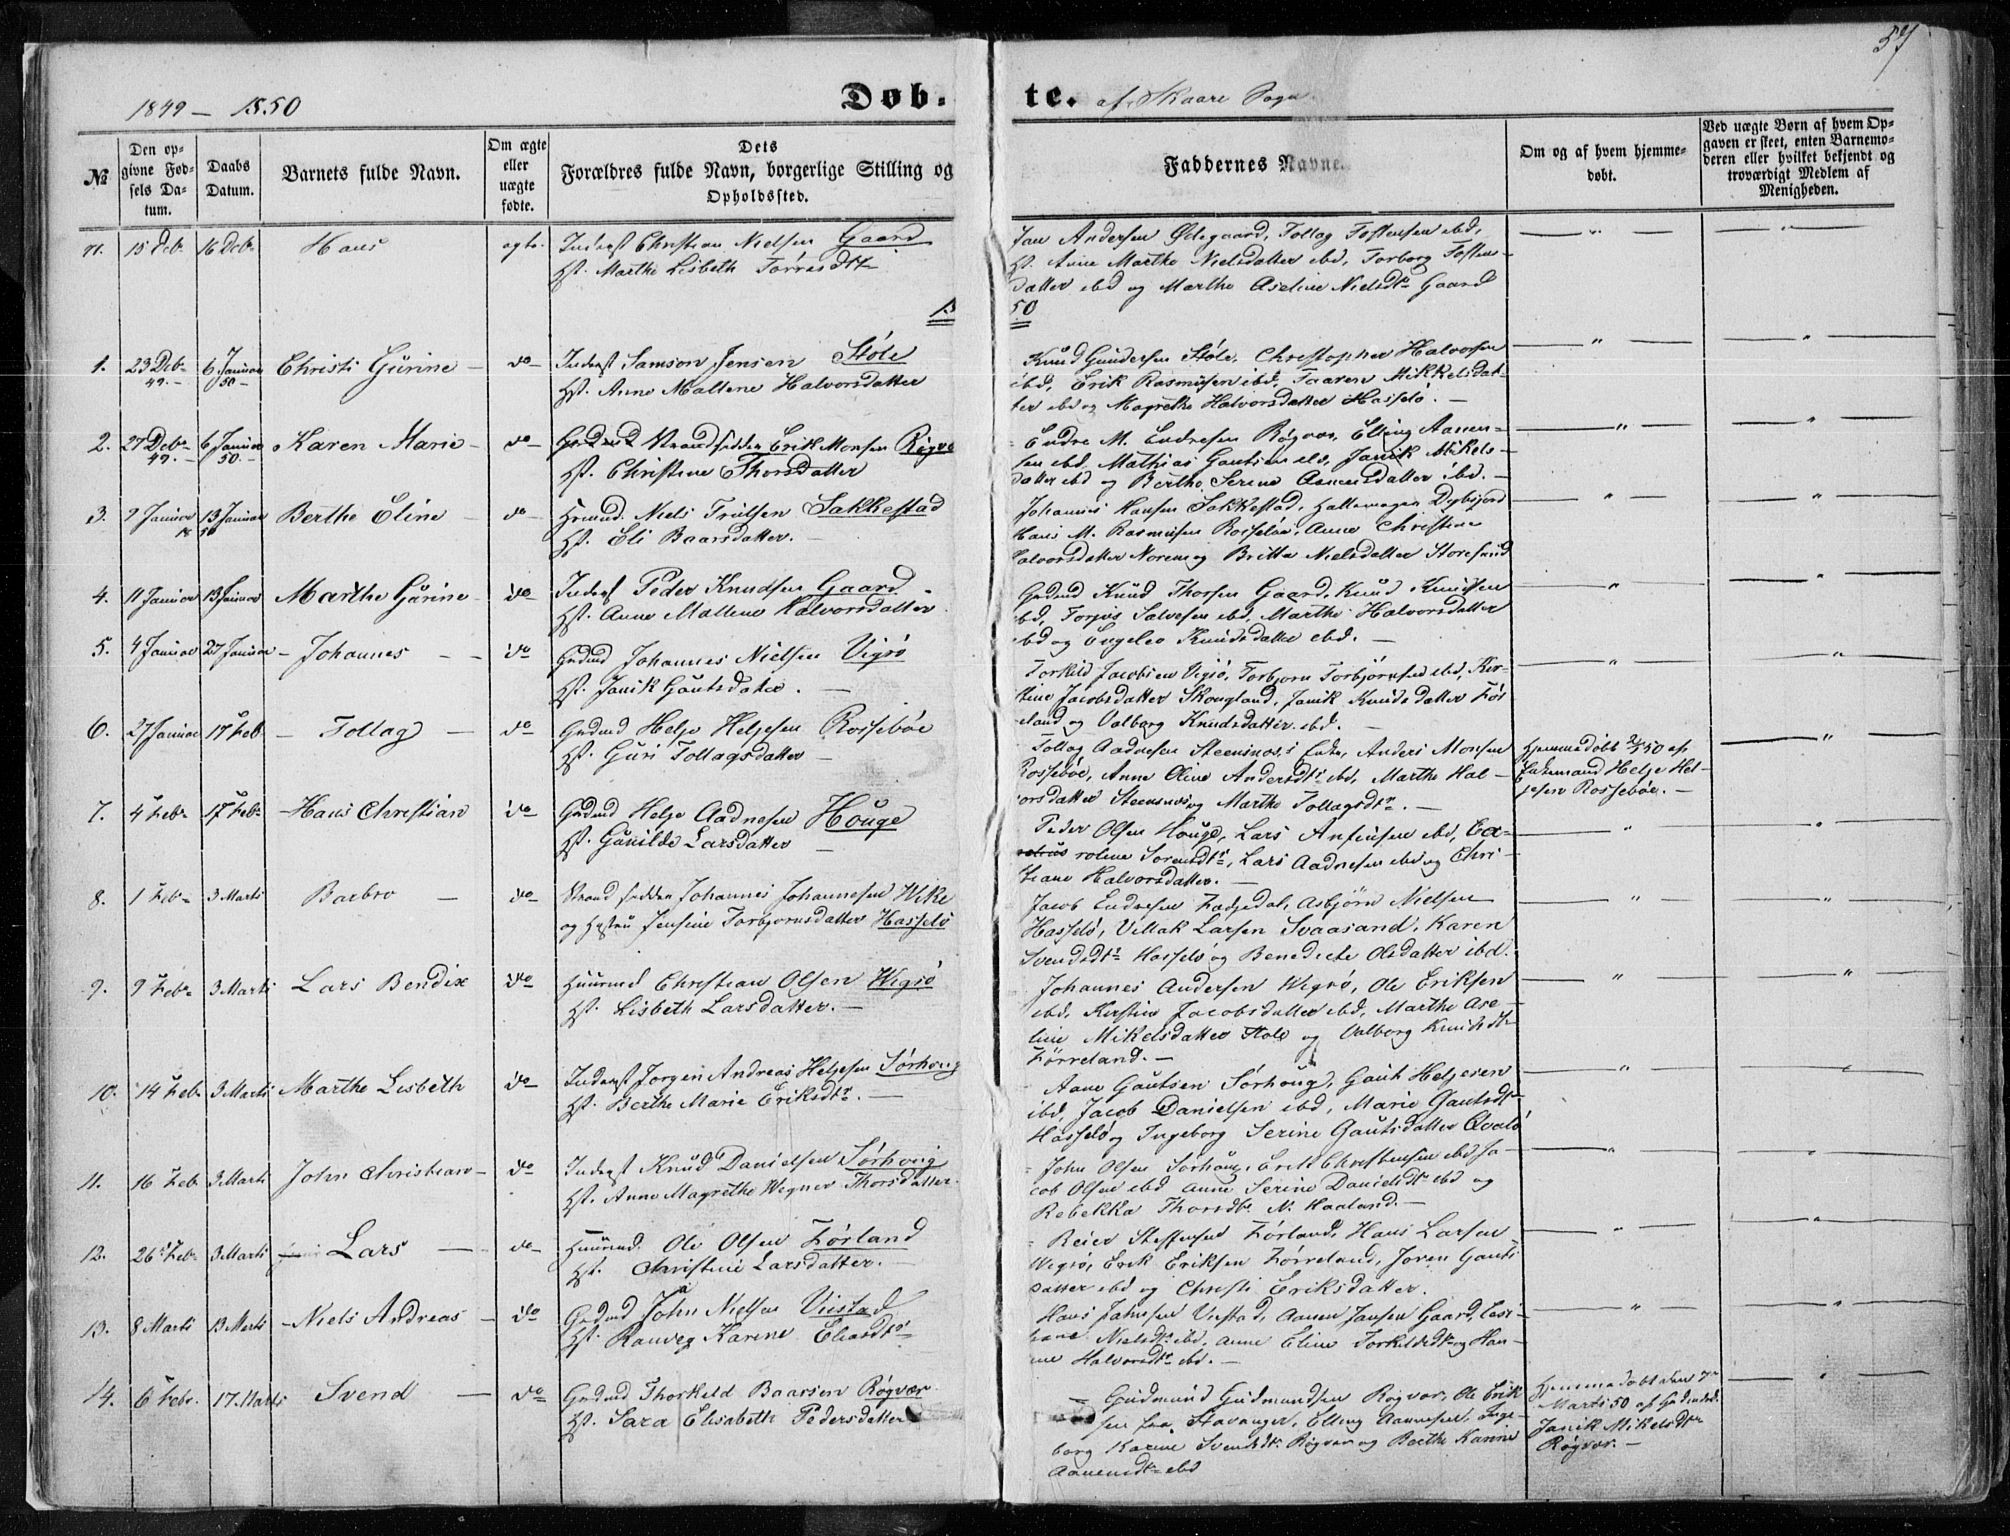 57
1849 – 1850
Døb-
te. af Skaare Sogn
№
Den op-
givne Fød-
sels Da-
tum.
Daabs
Datum.
Barnets fulde Navn.
Om ægte
eller
uægte
fødte.
Dets
Forældres fulde Navn, borgerlige Stilling og
Opholdssted.
Faddernes Navne.
Om og af hvem hjemme-
døbt.
Ved uægte Børn af hvem Op-
gaven er skeet, enten Barnemo-
deren eller hvilket bekjendt og
troværdigt Medlem af
Menigheden.
71. 15 Deb. 16 Deb. Hans ægte. Inderst Christian Nielsen Gaard
Hst. Marthe Lisbeth Torresdtr
Jan Andersen Ødegaard, Tollag Tostensen ibd,
Hst. Anne Marthe Nielsdatter ibd, Torborg Tostens-
datter ibd og Marthe Aseline Nielsdtr Gaard
18
50
1. 23 Deb. 49. – 6 Januar 50 – Christi Gurine – do – Inderst Samson Jensen Støle
Hst. Anne Mallene Halvorsdatter
Knud Gundersen Støle, Christopher Halvorsen
ibd, Erik Rasmusen ibd, Taaren Mikkelsdat-
ter ibd og Magrethe Halvorsdatter Hasselø. –
2. 27 Deb. 49. – 6 Januar 50. – Karen Marie – do – Strandsidder Erik Monsen Røgvær
Hst. Christine Thorsdatter
Endre M. Endresen Røgvær, Elling Aanen-
sen ibd, Mathias Gautsen ibd, Janik Mikels-
datter ibd og Berthe Serine Aanensdatter ibd. –
3. 9 Januar 13 Januar 50 Berthe Eline – do – Huusmd. Niels Trulsen Sakkestad
Hst. Eli Baarsdatter. –
Johannes Hansen Sakkestad, Dybsjord
Hans M. Rasmusen Rossebø, Anne Christine
Halvorsdatter Norem og Britta Nielsdatter Storesund
4. 11 Januar 13 Januar Marthe Gurine – do Inderst Peder Knudsen Gaard
Hst. Anne Mallene Halvorsdatter.
Grdmd Knud Thorsen Gaard, Knud Knudsen
ibd, Torjus Salvesen ibd, Marthe Halvorsdatter
ibd og Engeleo Knudsdatter ibd. –
5. 4 Januar 27 Januar – Johannes – – do Grdmd Johannes Nielsen Vigsø
Hst. Janik Gautsdatter. –
Torkild Jacobsen Vigsø, Torbjørn Torbjørnsen ibd, Kir-
stine Jacobsdatter Skougland, Janik Knudsdatter Før-
reland og Valborg Knudsdatter ibd. –
6. 27 Januar 17 Feb. – Tollag – do – Grdmd Helje Heljesen Rossebøe
Hst. Guri Tollagsdatter –
Tollag Aadnesen Steensnes, Anders Monsen
Rossebøe, Anne Oline Andersdtr ibd, Marthe Hal-
vorsdatter Steensnes og Marthe Tollagsdtr. –
Hjemmedøbt 2/2 50 af
Helje Hel-
jesen Rossebøe. –
7. 4 Feb. 17 Feb. – Hans Christian do – Grdmd Helje Aadnesen Houge
Hst. Gunilde Larsdatter –
Peder Olsen Houge, Lars Anfinsen ibd, Ca-
roline Sørensdtr, Lars Aadnesen ibd og Chri-
stiane Halvorsdatter. –
8. 1 Feb. – 3 Marti Barbro – do – Strandsidder Johannes Johannesen Wike
og Hustru Jensine Torbjørnsdatter Hasselø
Jacob Endresen , Asbjørn Nielsen
Hasselø, Villak Larsen Svaasand, Karen
Svendsdtr Hasselø og Benedicte Olsdatter ibd.
9. 9 Feb. 3 Marti Lars Bendix do – Huusmd Christian Olsen Wigsø
Hst. Lisbeth Larsdatter. –
Johannes Andersen Wigsø, Ole Eriksen
ibd, Kirstine Jacobsdatter ibd, Marthe Ase-
line Mikelsdatter Støle og Valborg Knudsdtr
Førreland. –
10. 14 Feb. 3 Marti Marthe Lisbeth do – Inderst Jørgen Andreas Heljesen Sørhoug
Hst. Berthe Marie Eriksdtr. –
Aane Gautsen Sørhoug, Gaut Heljesen
ibd, Jacob Danielsen ibd, Marie Gautsdtr
Hasselø og Ingeborg Serine Gautsdatter Qvalø
11. 16 Feb. 3 Marti John Christian – do – Inderst Knud Danielsen Sørhoug
Hst. Anne Magrethe Wegner Thorsdatter.
John Olsen Sørhoug, Erik Christensen ibd, Ja-
cob Olsen ibd Anne Serine Danielsdtr ibd og
Rebekka Thorsdtr N. Haaland. –
12. 26 Feb. 3 Marti – Lars – do – Huusmd. Ole Olsen Førland
Hst. Christine Larsdatter. –
Reier Steffensen Førland, Hans Larsen
Wigsø, Erik Eriksen Førreland, Joren Gauts-
datter ibd og Christi Eriksdatter.
13. 8 Marti 13 Marti – Niels Andreas – do Grdmd John Nielsen Viestad
Hst. Ranveg Karine Eliasdtr –
Hans Johnsen Viestad, Aanen Jansen Gaard,
Nielsdtr ibd, Anne Eline Torkildsdtr og Han-
ne Halvorsdtr ibd. –
14. 6 Febr. 17. Marti Svend – do – Grdmd Thorkeld Baarsen Røgvær
Hst. Sara Elisabeth Pedersdatter
– Gudmund Gudmundsen Røgvær, Ole Erik-
sen fra Stavanger, Elling Aannesen, Inge-
borg Karine Svendsdtr Røgvær og Berthe Karine
Aanensdtr ibd
Hjemmedøbt den 7de
Marti 50 af Grdmdsk.
Janik Mikelsdtr
Røgvær. –